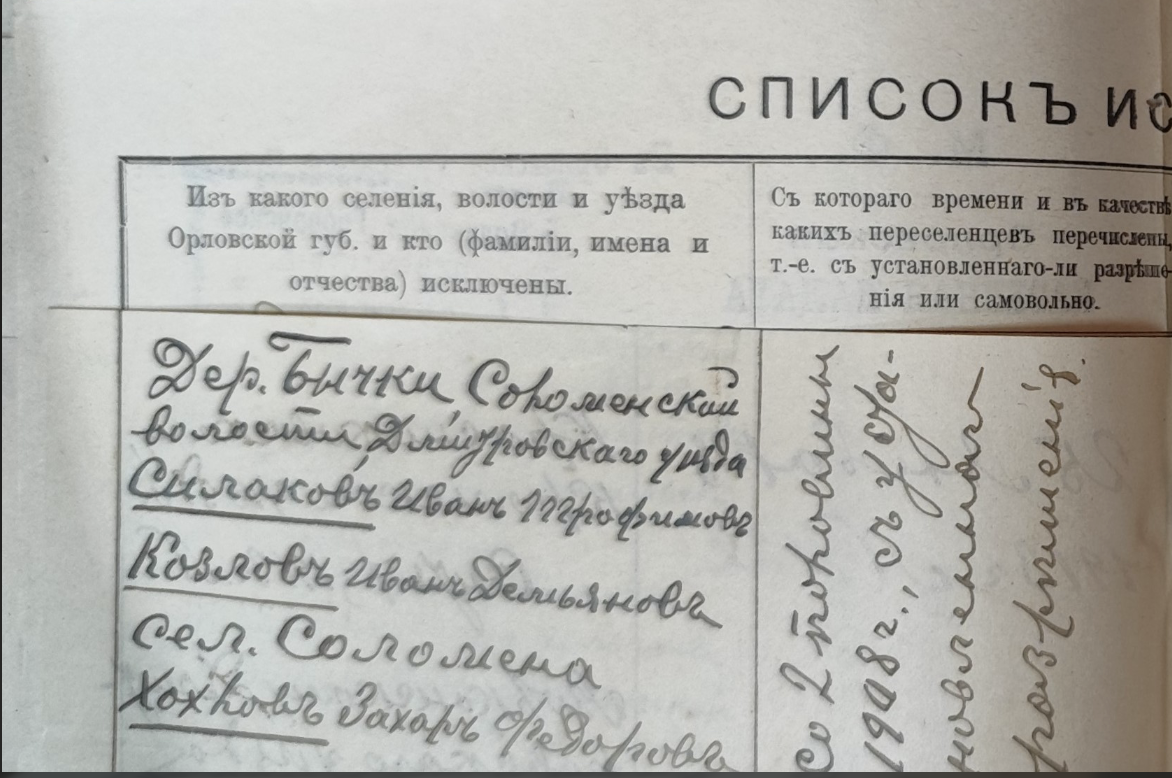 СПИСОКЪ ИС
Изъ какого селенія, волости и уѣзда
Орловской губ. и кто (фамиліи, имена и
отчества) исключены.
Съ котораго времени и въ качествѣ
какихъ переселенцевъ перечислены,
т.-е. съ установленнаго-ли разрѣше-
нія или самовольно.
Дер. Бычки Соломенской
волости Дмитровскаго уѣзда
Силаковъ Иванъ Трофимовъ
Козловъ Иванъ Демьяновъ
сел. Соломена
Хохловъ Захаръ Федоровъ
со 2 половины
1908 г., съ уста-
новленнаго
разрѣшенія.